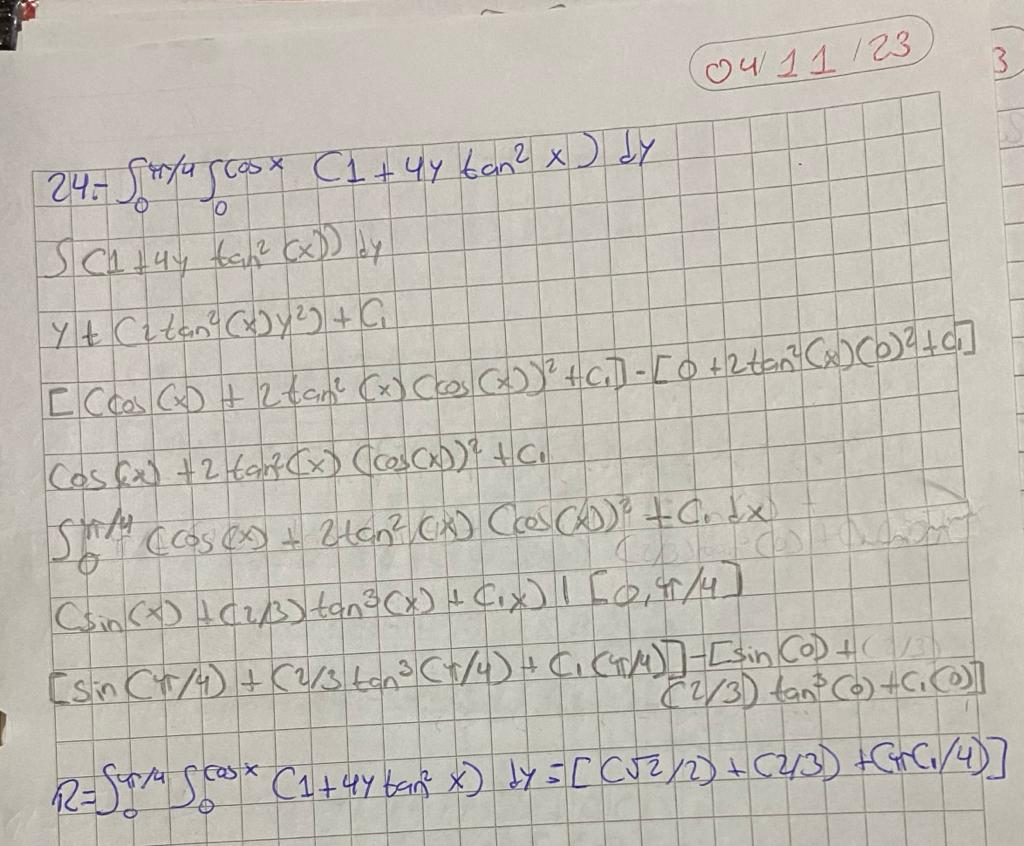 04/11/23
3
24.- ∫₀^π/4 ∫₀^cos x (1 + 4y tan² x) dy
∫ (1 + 4y tan² (x)) dy
y + (2 tan² (x) y²) + C₁
[(cos (x) + 2 tan² (x) (cos (x))² + C₁] - [0 + 2 tan² (x) (0)² + C₁]
cos (x) + 2 tan² (x) (cos(x))² + C₁
∫₀^π/4 (cos (x) + 2 tan² (x) (cos (x))² + C₁ dx
(sin (x) + (2/3) tan³ (x) + C₁x) | [0, π/4]
[sin (π/4) + (2/3 tan³ (π/4) + C₁ (π/4)] - [sin (0) +
(2/3) tan³ (0) + C₁ (0)]
R = ∫₀^π/4 ∫₀^cos x (1 + 4y tan² x) dy = [(√2/2) + (2/3) + (π C₁/4)]